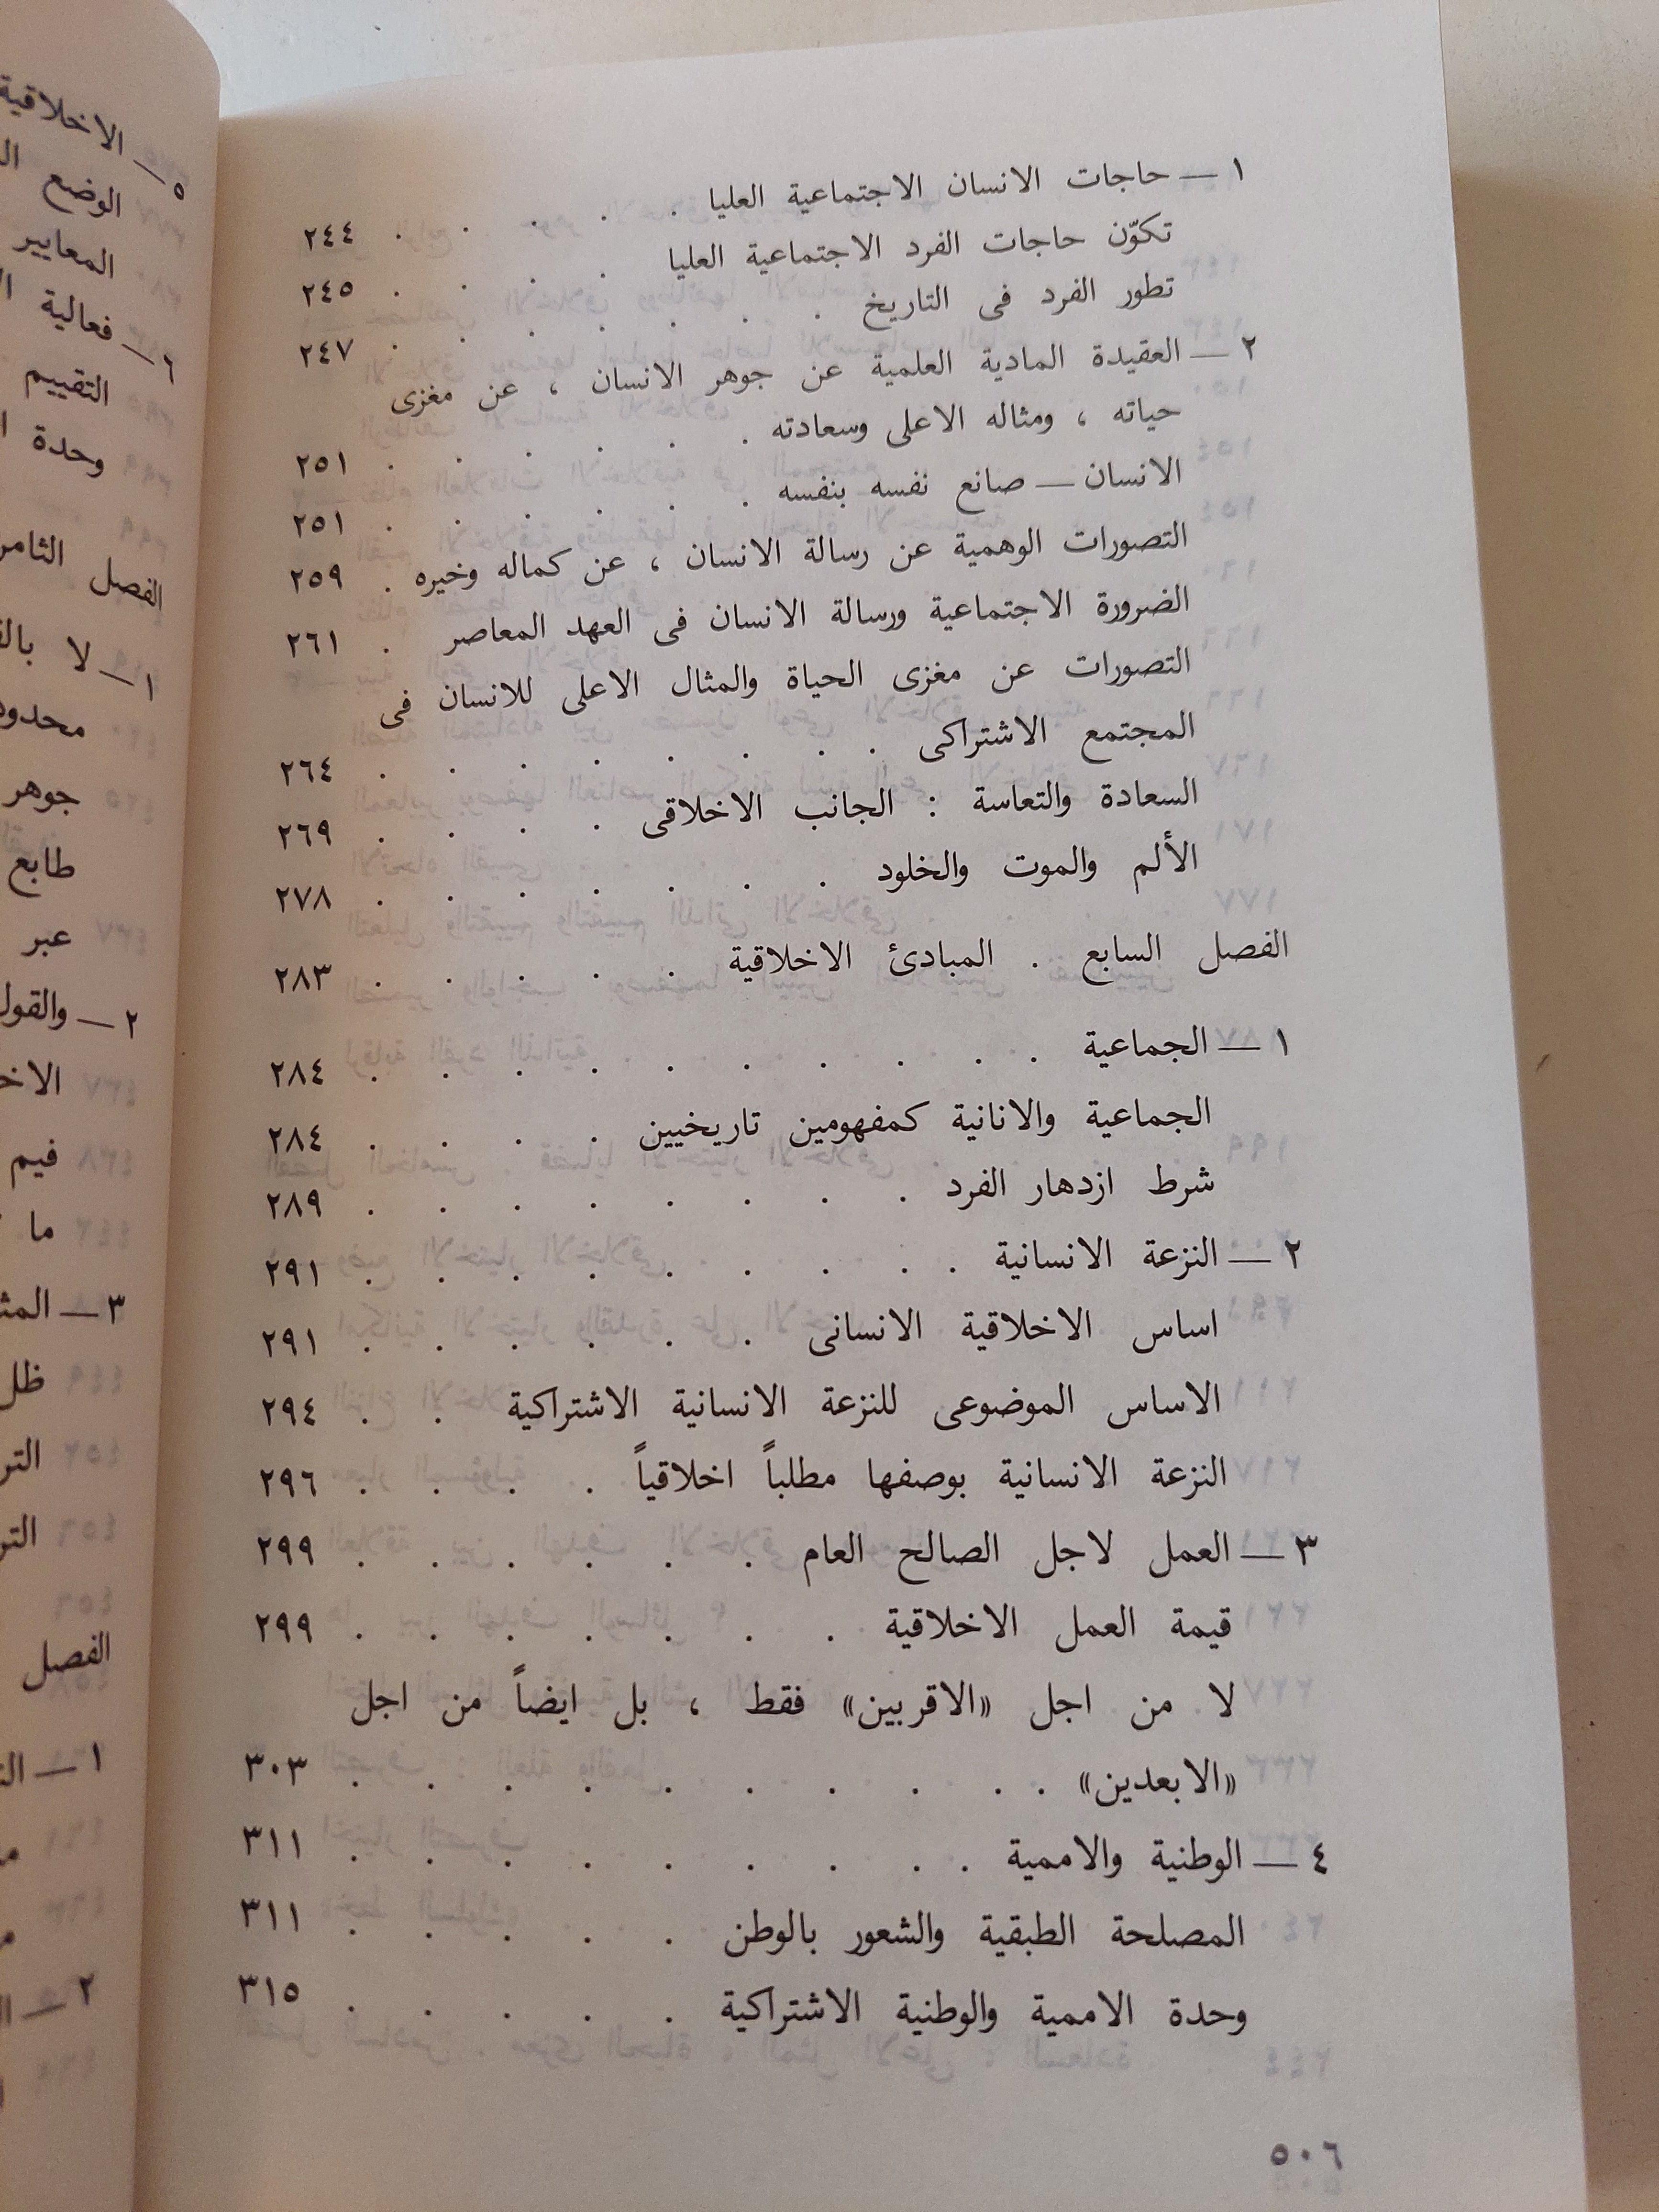 ١ — حاجات الانسان الاجتماعية العليا . . . . . ٢٤٤
تكوّن حاجات الفرد الاجتماعية العليا . . . . ٢٤٥
تطور الفرد فى التاريخ . . . . . . . ٢٤٧
٢ — العقيدة المادية العلمية عن جوهر الانسان ، عن مغزى
حياته ، ومثاله الاعلى وسعادته . . . . . . ٢٥١
الانسان — صانع نفسه بنفسه . . . . . . ٢٥١
التصورات الوهمية عن رسالة الانسان ، عن كماله وخيره . ٢٥٩
الضرورة الاجتماعية ورسالة الانسان فى العهد المعاصر . ٢٦١
التصورات عن مغزى الحياة والمثال الاعلى للانسان فى
المجتمع الاشتراكى . . . . . . . . ٢٦٤
السعادة والتعاسة : الجانب الاخلاقى . . . . ٢٦٩
الألم والموت والخلود . . . . . . . ٢٧٨
الفصل السابع . المبادئ الاخلاقية . . . . . ٢٨٣
١ — الجماعية . . . . . . . . . . ٢٨٤
الجماعية والانانية كمفهومين تاريخيين . . . . ٢٨٤
شرط ازدهار الفرد . . . . . . . . ٢٨٩
٢ — النزعة الانسانية . . . . . . . . . ٢٩١
اساس الاخلاقية الانسانى . . . . . . ٢٩١
الاساس الموضوعى للنزعة الانسانية الاشتراكية . . ٢٩٤
النزعة الانسانية بوصفها مطلباً اخلاقياً . . . . ٢٩٦
٣ — العمل لاجل الصالح العام . . . . . . ٢٩٩
قيمة العمل الاخلاقية . . . . . . . ٢٩٩
لا من اجل «الاقربين» فقط ، بل ايضاً من اجل
«الابعدين» . . . . . . . . . . ٣٠٣
٤ — الوطنية والاممية . . . . . . . . . ٣١١
المصلحة الطبقية والشعور بالوطن . . . . . ٣١١
وحدة الاممية والوطنية الاشتراكية . . . . . ٣١٥
٥٠٦
٥ — الاخلاقية
الوضع
المعايير
٦ — فعالية
التقييم
وحدة
الفصل الثامن
١ — لا
جوهر
طابع
عبر
٢ — والقول
فيم
ما
٣ —
ظل
الفصل
١ —
٢ —